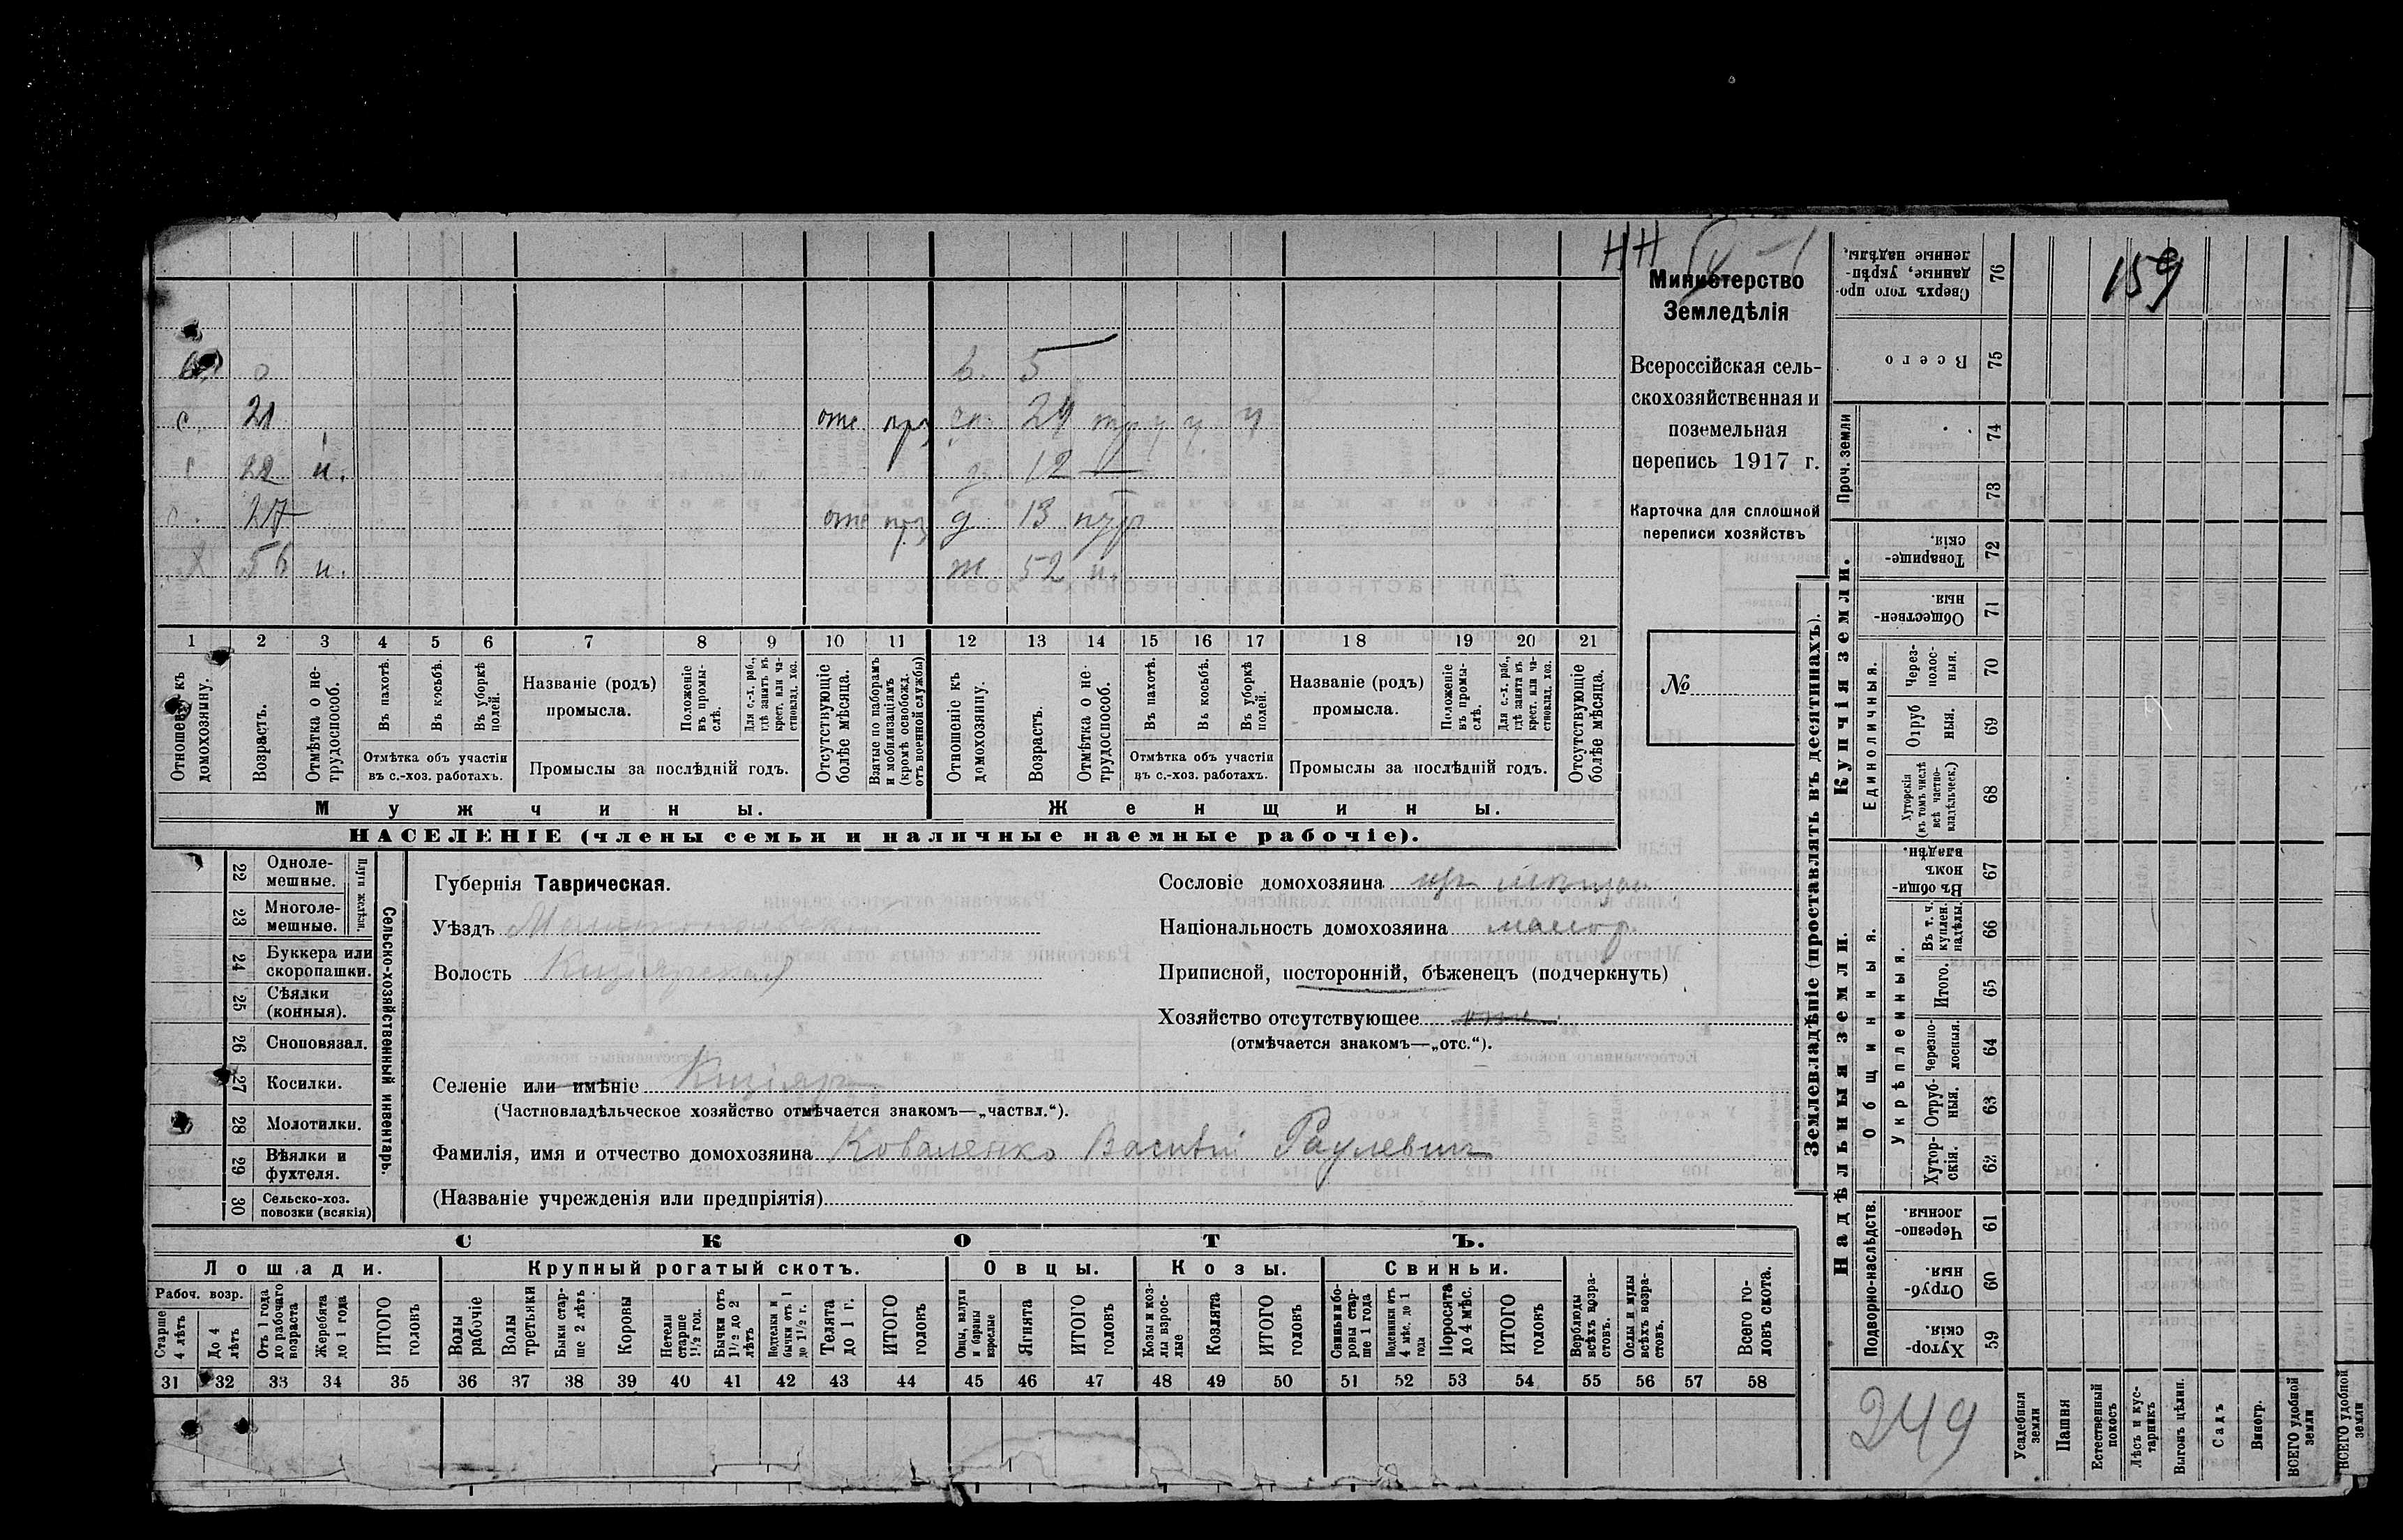 НН IV – 1
Министерство
Земледѣлія
Всероссійская сель-
скохозяйственная и
поземельная
перепись 1917 г.
Карточка для сплошной
переписи хозяйствъ
№
159
5
с. 21 отс 29
22 н. д. 12
27 отс д 13
Х 56 н. ж 52 н.
1 2 3 4 5 6 7 8 9 10 11 12 13 14 15 16 17 18 19 20 21
Отношеніе къ домохозяину.
Возрастъ.
Отмѣтка о не-трудоспособ.
Въ пахотѣ.
Въ косьбѣ.
Въ уборкѣ полей.
Отмѣтка объ участіи
въ с.-хоз. работахъ.
Названіе (родъ)
промысла.
Положеніе въ промы-слѣ.
Для с.-х. раб., гдѣ занятъ въ крест. или ча-стновлад. хоз.
Промыслы за послѣдній годъ.
Отсутствующіе болѣе мѣсяца.
Взятые по наборамъ и мобилизаціямъ (кромѣ освобожд. отъ военной службы)
Отношеніе къ домохозяину.
Возрастъ.
Отмѣтка о не-трудоспособ.
Въ пахотѣ.
Въ косьбѣ.
Въ уборкѣ полей.
Отмѣтка объ участіи
въ с.-хоз. работахъ.
Названіе (родъ)
промысла.
Положеніе въ промы-слѣ.
Для с.-х. раб., гдѣ занята въ крест. или ча-стновлад. хоз.
Промыслы за послѣдній годъ.
Отсутствующіе болѣе мѣсяца.
Мужчины.
Женщины.
НАСЕЛЕНІЕ (члены семьи и наличные наемные рабочіе).
22 Одноле-мешные.
23 Многоле-мешные.
Плуги желѣзн.
24 Буккера или скоропашки.
25 Сѣялки (конныя).
26 Сноповязал.
27 Косилки.
28 Молотилки.
29 Вѣялки и фухтеля.
30 Сельско-хоз. повозки (всякія)
Сельско-хозяйственный инвентарь.
Губернія Таврическая.
Уѣздъ Мелитопольскій
Волость Кизіярская
Селеніе или имѣніе Кизіяръ
(Частновладѣльческое хозяйство отмѣчается знакомъ—„частвл.“).
Фамилія, имя и отчество домохозяина Коваленко Василій
(Названіе учрежденія или предпріятія)
Сословіе домохозяина
Національность домохозяина малор.
Приписной, посторонній, бѣженецъ (подчеркнуть)
Хозяйство отсутствующее
(отмѣчается знакомъ—„отс.“).
СКОТЪ.
Лошади.
Крупный рогатый скотъ.
Овцы.
Козы.
Свиньи.
Рабоч. возр.
Старше 4 лѣтъ
До 4 лѣтъ
Отъ 1 года до рабочаго возраста
Жеребята до 1 года
ИТОГО головъ
Волы рабочіе
Волы третьяки
Быки стар-ше 2 лѣтъ
Коровы
Нетели старше 1½ год.
Бычки отъ 1½ до 2 лѣтъ
Подтелки и бычки отъ 1 до 1½ г.
Телята до 1 г.
ИТОГО головъ
Овцы, валухи и бараны взрослые
Ягнята
ИТОГО головъ
Козы и коз-лы взрос-лые
Козлята
ИТОГО головъ
Свиньи и бо-ровы стар-ше 1 года
Подсвинки отъ 4 мѣс. до 1 года
Поросята до 4 мѣс.
ИТОГО головъ
Верблюды всѣхъ возра-стовъ.
Ослы и мулы всѣхъ возра-стовъ.
Всего го-ловъ скота.
31 32 33 34 35 36 37 38 39 40 41 42 43 44 45 46 47 48 49 50 51 52 53 54 55 56 57 58
Землевладѣніе (проставлять въ десятинахъ).
Купчія земли.
Проч. земли
Единоличныя.
Надѣльныя земли.
Общинныя.
Укрѣпленныя.
Подворно-наслѣдств.
Сверхъ того про-данные, укрѣп-ленные надѣлы. 76
Всего 75
74
73
Товарище-скія. 72
Обществен-ныя. 71
Через-полос-ныя. 70
Отруб ныя. 69
Хуторскія (въ томъ числѣ всѣ частно-владѣльческ.) 68
Въ общи-номъ владѣн. 67
Въ т. ч. куплен. надѣлы. 66
Итого. 65
Черезпо-лосныя. 64
Отруб-ныя. 63
Хутор-скія. 62
Черезпо-лосныя. 61
Отруб-ныя. 60
Хутор-скія. 59
249
Усадебныя земли
Пашня
Естественный покосъ
Лѣсъ и кус-тарникъ
Выгонъ цѣлин.
Садъ
Виногр.
ВСЕГО удобной земли
ВСЕГО удобной земли